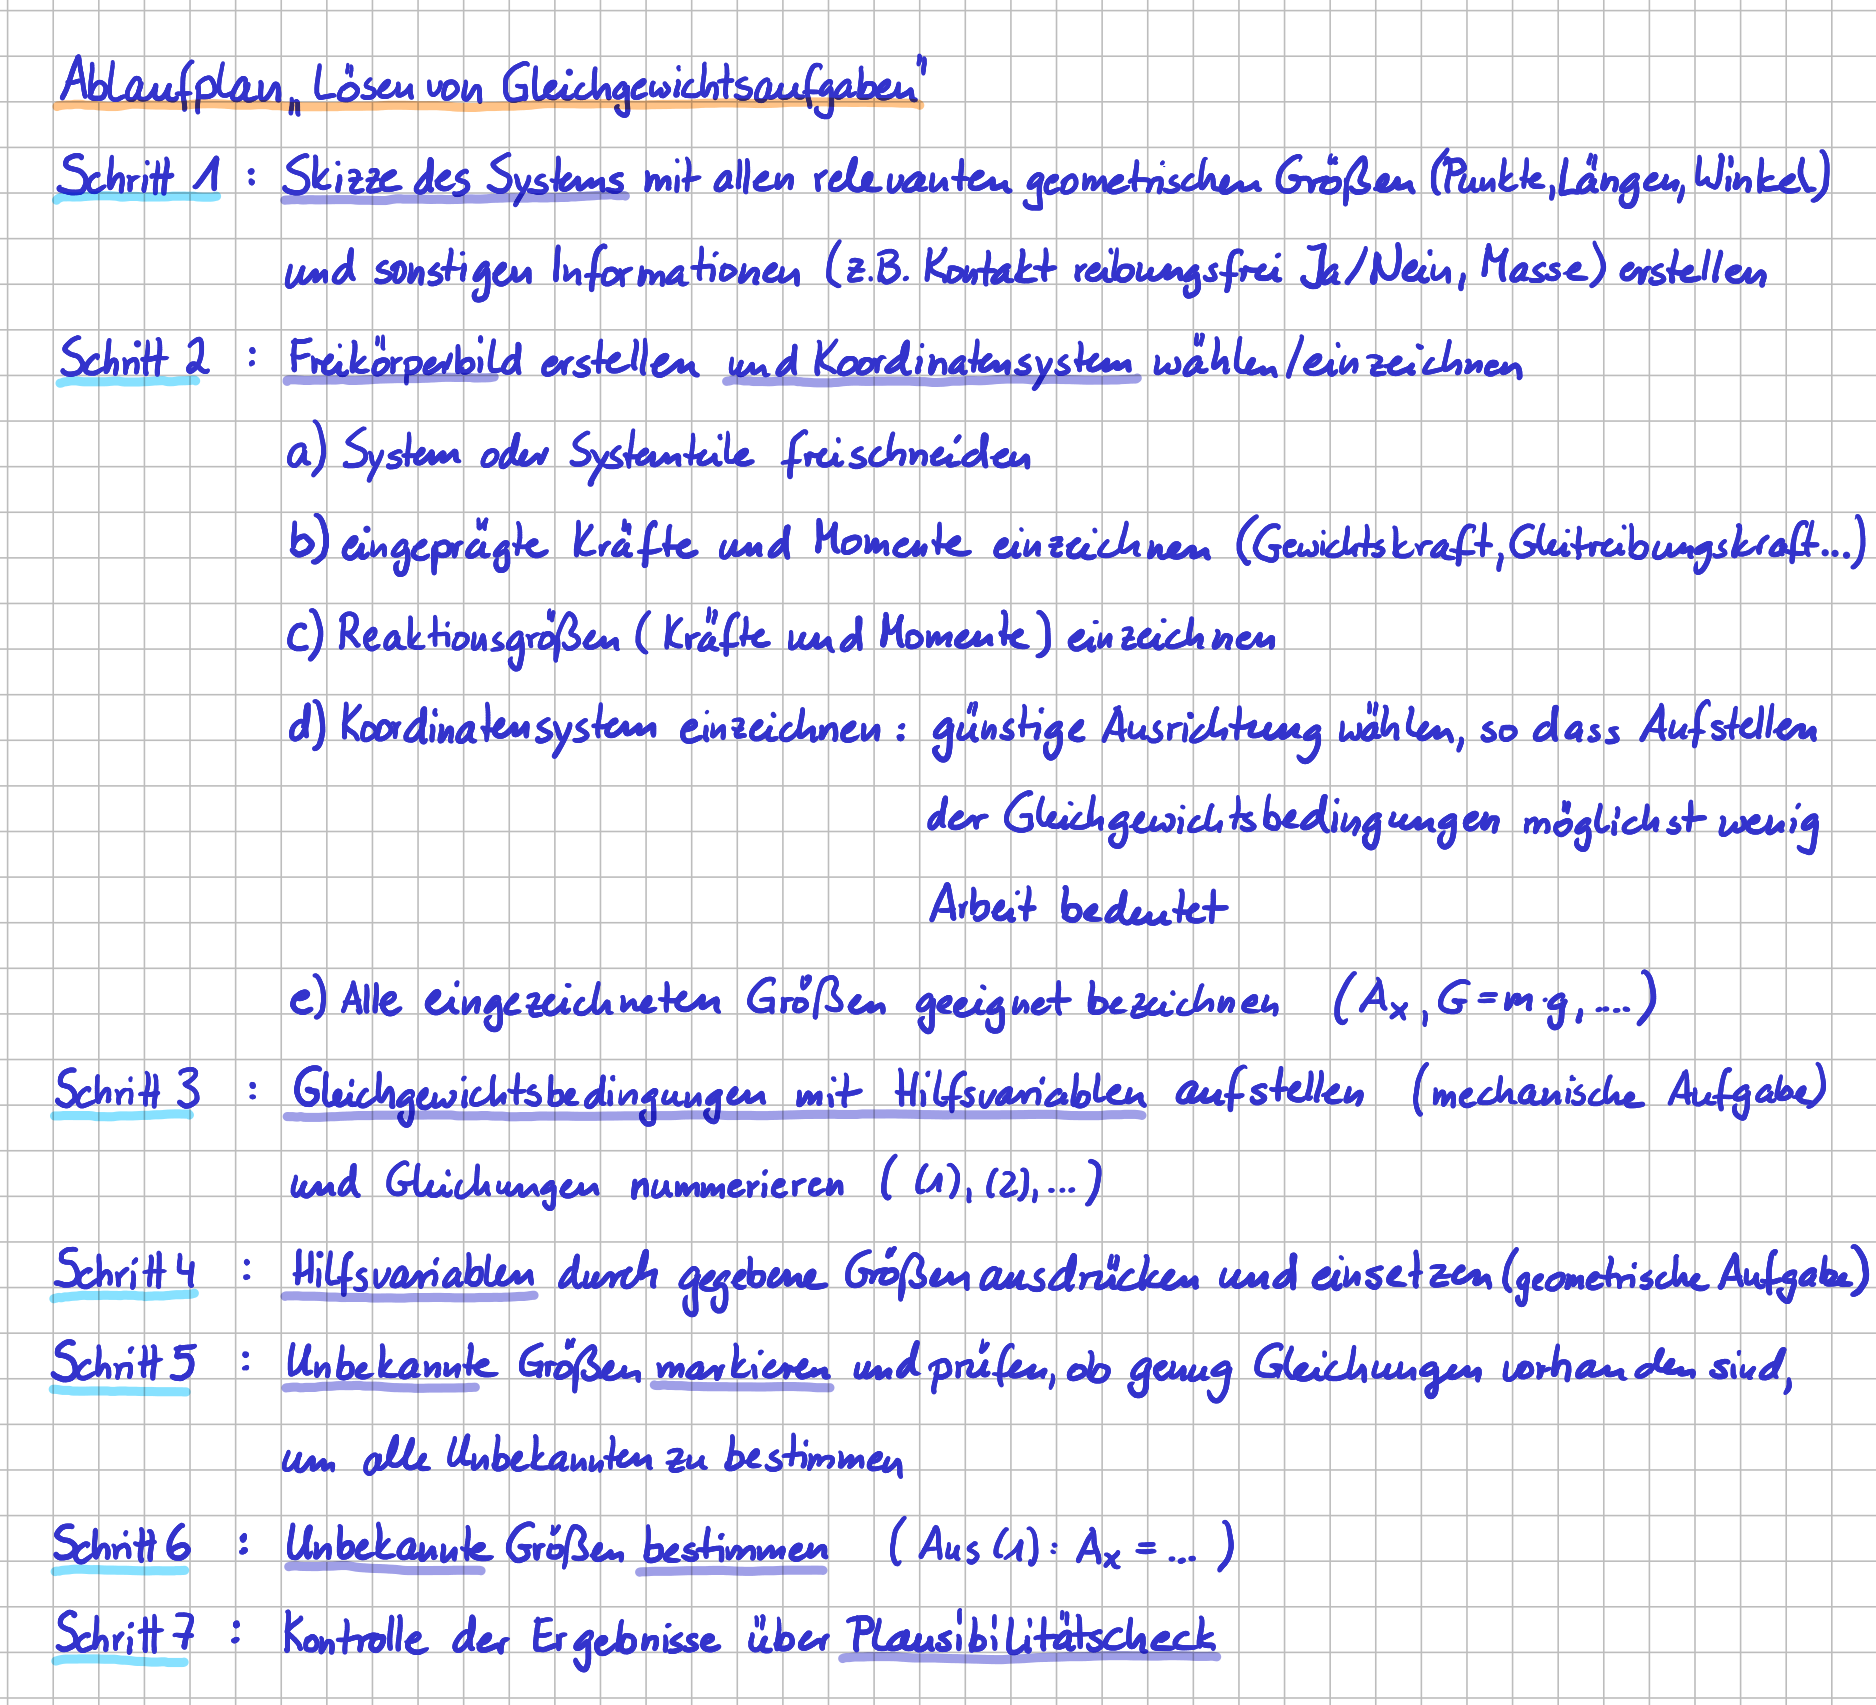 Ablaufplan „Lösen von Gleichgewichtsaufgaben"
Schritt 1 : Skizze des Systems mit allen relevanten geometrischen Größen (Punkte, Längen, Winkel)
und sonstigen Informationen (z.B. Kontakt reibungsfrei Ja/Nein, Masse) erstellen
Schritt 2 : Freikörperbild erstellen und Koordinatensystem wählen/einzeichnen
a) System oder Systemteile freischneiden
b) eingeprägte Kräfte und Momente einzeichnen (Gewichtskraft, Gleitreibungskraft...)
c) Reaktionsgrößen (Kräfte und Momente) einzeichnen
d) Koordinatensystem einzeichnen : günstige Ausrichtung wählen, so dass Aufstellen
der Gleichgewichtsbedingungen möglichst wenig
Arbeit bedeutet
e) Alle eingezeichneten Größen geeignet bezeichnen (Aₓ, G = m·g, ....)
Schritt 3 : Gleichgewichtsbedingungen mit Hilfsvariablen aufstellen (mechanische Aufgabe)
und Gleichungen nummerieren ( (1), (2), ... )
Schritt 4 : Hilfsvariablen durch gegebene Größen ausdrücken und einsetzen (geometrische Aufgabe)
Schritt 5 : Unbekannte Größen markieren und prüfen, ob genug Gleichungen vorhanden sind,
um alle Unbekannten zu bestimmen
Schritt 6 : Unbekannte Größen bestimmen ( Aus (1) : Aₓ = ... )
Schritt 7 : Kontrolle der Ergebnisse über Plausibilitätscheck